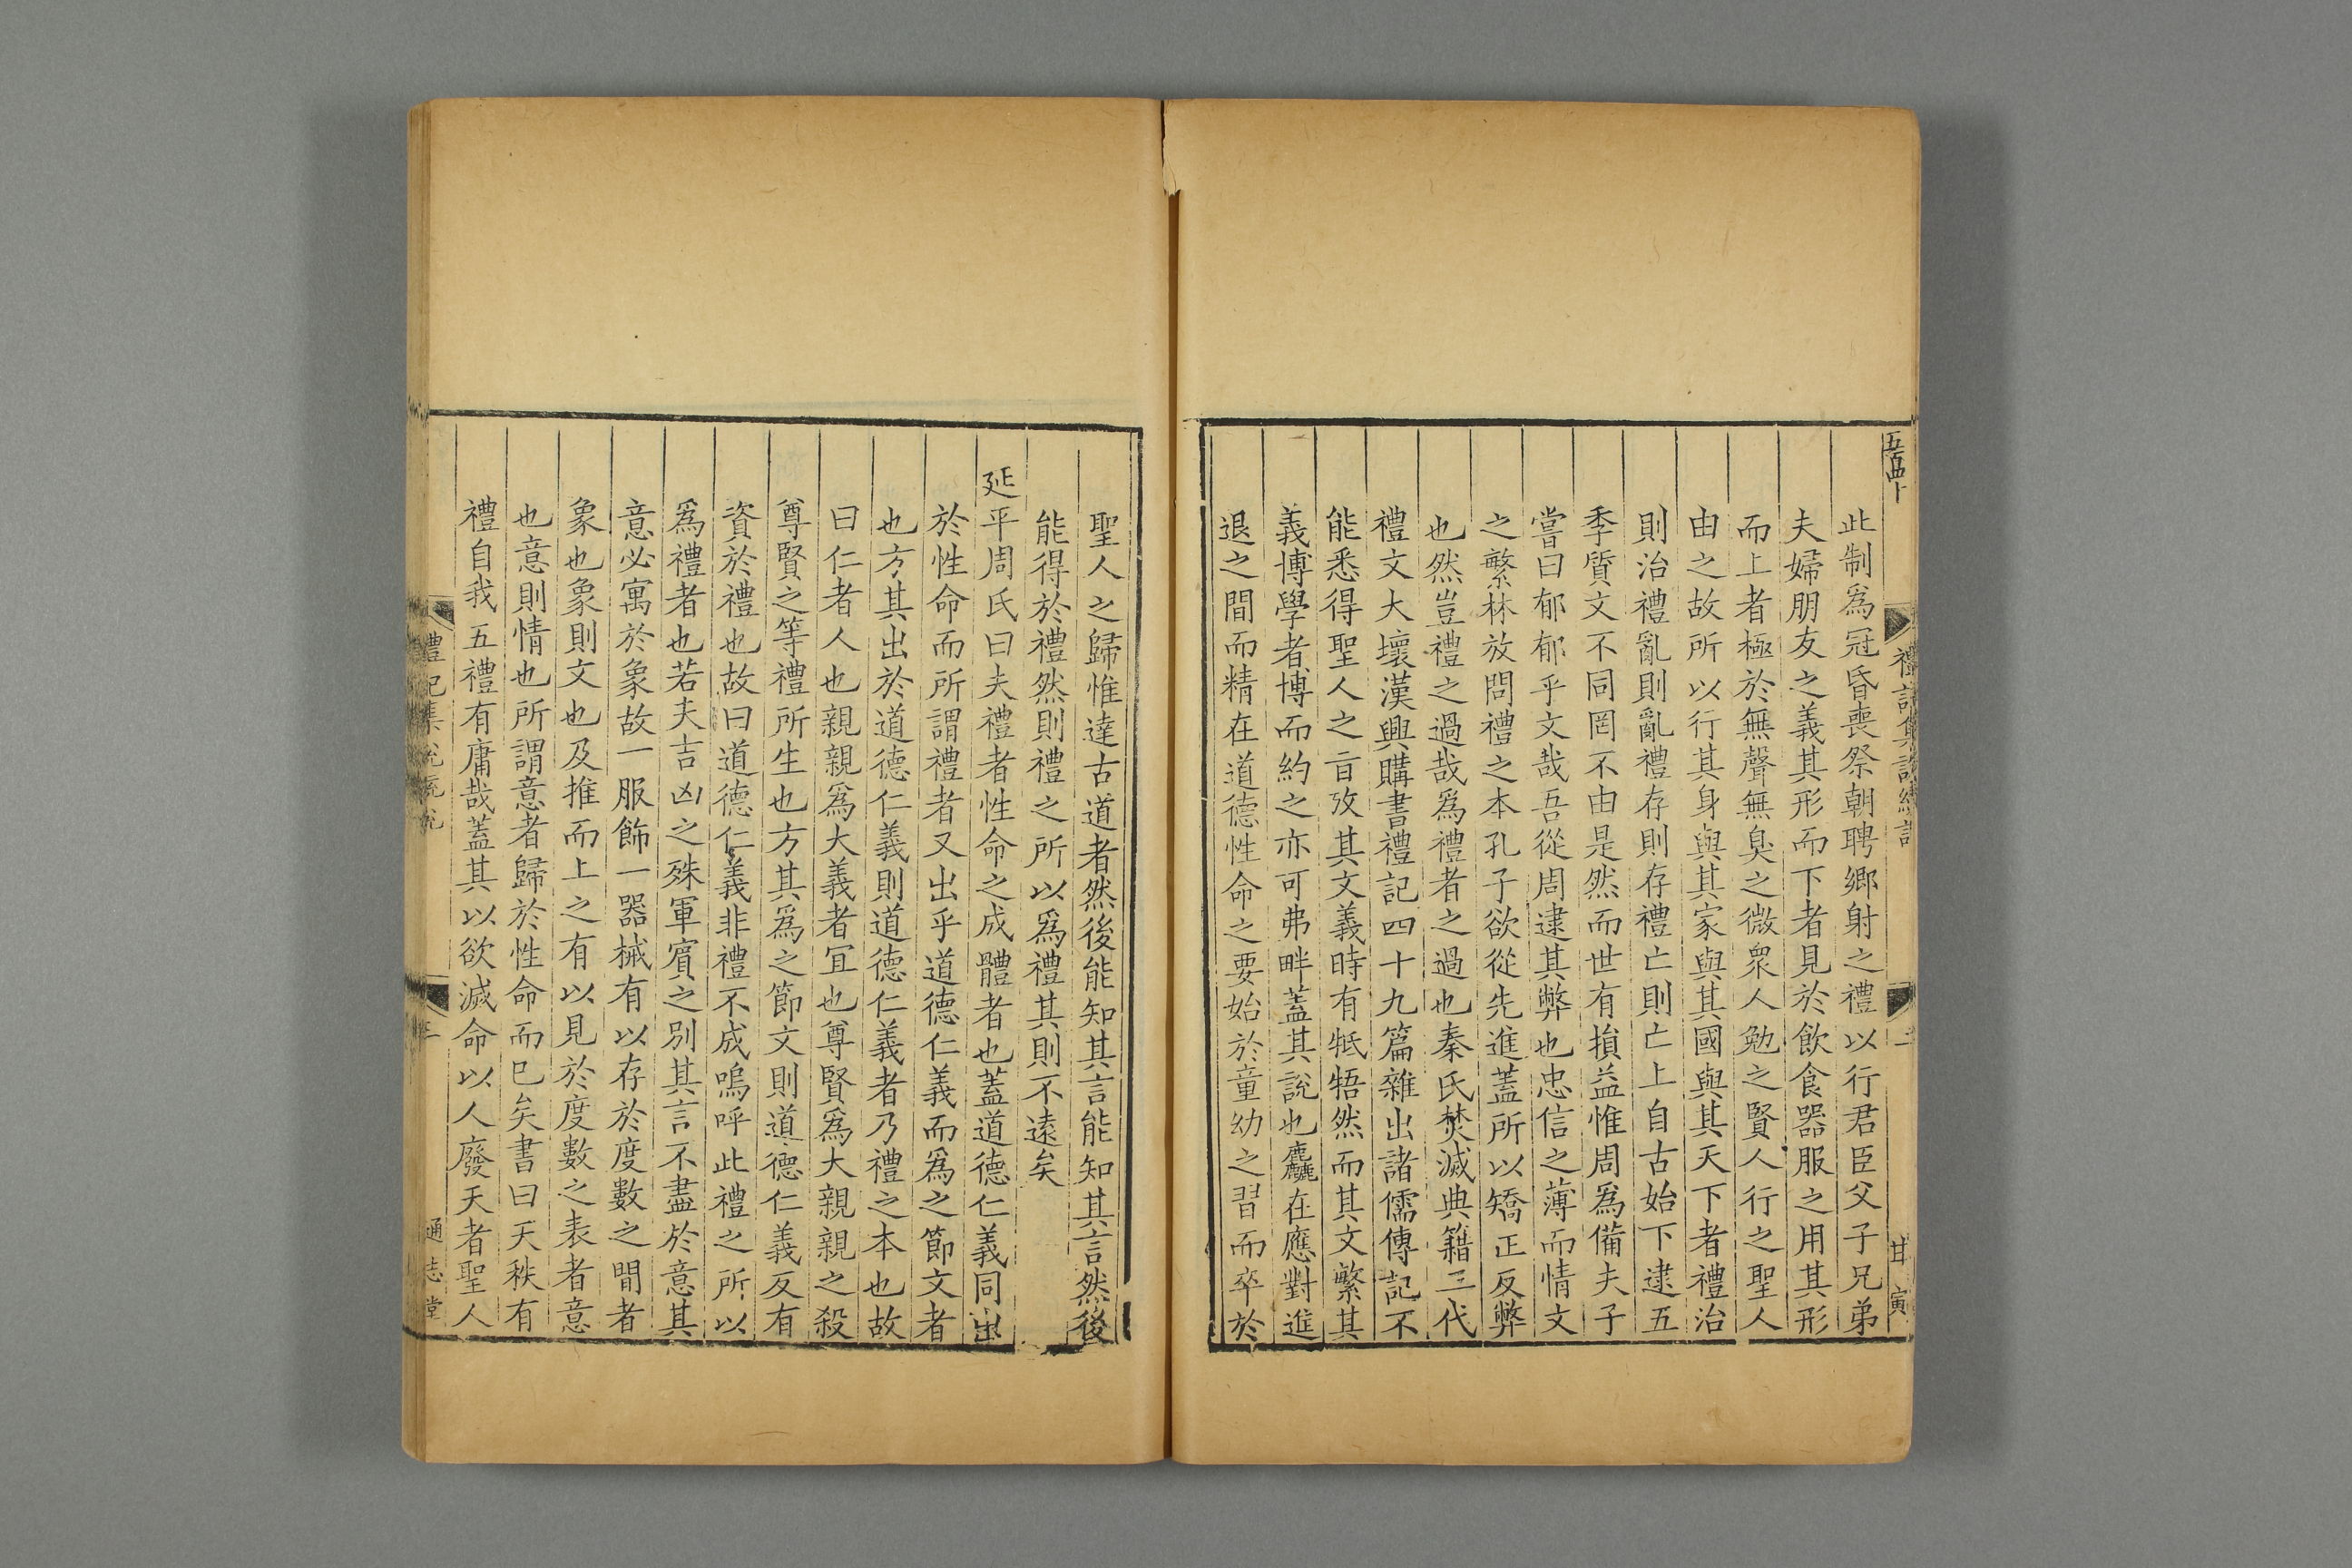 禮記集說統說
二
甘寅
此制爲冠昏喪祭朝聘鄉射之禮以行君臣父子兄弟
夫婦朋友之義其形而下者見於飲食器服之用其形
而上者極於無聲無臭之微衆人勉之賢人行之聖人
由之故所以行其身與其家與其國與其天下者禮治
則治禮亂則亂禮存則存禮亡則亡上自古始下逮五
季質文不同罔不由是然而世有損益惟周爲備夫子
嘗曰郁郁乎文哉吾從周逮其弊也忠信之薄而情文
之繁林放問禮之本孔子欲從先進蓋所以矯正反弊
也然豈禮之過哉爲禮者之過也秦氏焚滅典籍三代
禮文大壞漢興購書禮記四十九篇雜出諸儒傳記不
能悉得聖人之旨攷其文義時有牴牾然而其文繁其
義博學者博而約之亦可弗畔蓋其說也麤在應對進
退之間而精在道德性命之要始於童幼之習而卒於
聖人之歸惟達古道者然後能知其言能知其言然後
能得於禮然則禮之所以爲禮其則不遠矣
延平周氏曰夫禮者性命之成體者也蓋道德仁義同出
於性命而所謂禮者又出乎道德仁義而爲之節文者
也方其出於道德仁義則道德仁義者乃禮之本也故
曰仁者人也親親爲大義者宜也尊賢爲大親親之殺
尊賢之等禮所生也方其爲之節文則道德仁義反有
資於禮也故曰道德仁義非禮不成嗚呼此禮之所以
爲禮者也若夫吉凶之殊軍賓之別其言不盡於意其
意必寓於象故一服飾一器械有以存於度數之間者
象也象則文也及推而上之有以見於度數之表者意
也意則情也所謂意者歸於性命而已矣書曰天秩有
禮自我五禮有庸哉蓋其以欲滅命以人廢天者聖人
禮記集說統說
三
通志堂